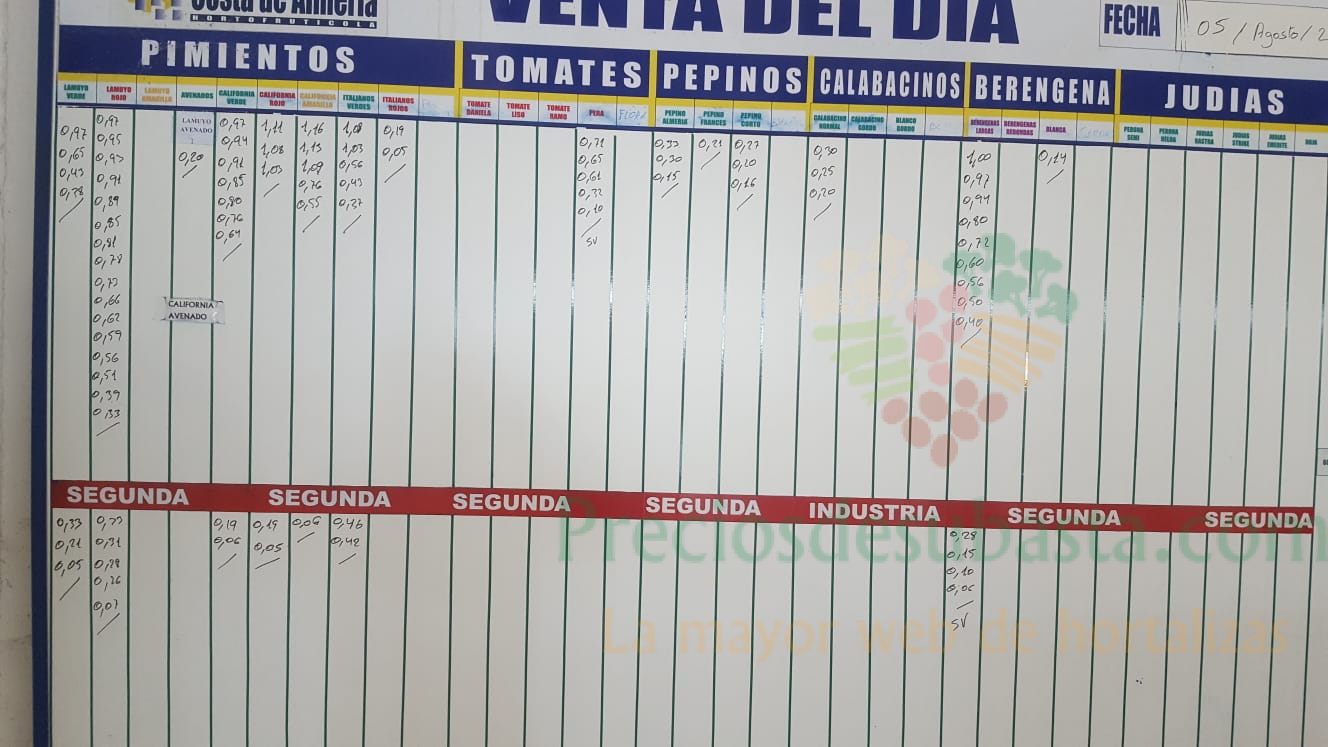 Costa de Almería
HORTOFRUTICOLA
VENTA DEL DIA
FECHA
05 / Agosto / 2
PIMIENTOS TOMATES PEPINOS CALABACINOS BERENGENA JUDIAS
LAMUYO VERDE LAMUYO ROJO LAMUYO AMARILLO AVENADOS CALIFORNIA VERDE CALIFORNIA ROJO CALIFORNIA AMARILLO ITALIANOS VERDES ITALIANOS ROJOS
TOMATE DANIELA TOMATE LISO TOMATE RAMO PERA FLORA
PEPINO ALMERIA PEPINO FRANCES PEPINO CORTO
CALABACINO NORMAL CALABACINO GORDO BLANCO GORDO
BERENGENAS LARGAS BERENGENAS REDONDAS BLANCA
PERONA SEMI PERONA HELDA JUDIAS RASTRA JUDIAS STRIKE JUDIAS EMERITE
0,97
0,65
0,43
0,97
0,95
0,93
0,91
0,89
0,85
0,81
0,78
0,73
0,66
0,62
0,59
0,56
0,51
0,39
0,33
LAMUYO
AVENADO
0,20
CALIFORNIA
AVENADO
0,97
0,94
0,91
0,85
0,80
0,76
0,64
1,11
1,08
1,03
1,16
1,13
1,09
0,76
0,55
1,03
0,56
0,43
0,37
0,19
0,05
0,71
0,65
0,61
0,32
0,10
SV
0,33
0,30
0,15
0,21
0,27
0,20
0,16
0,30
0,25
0,20
1,00
0,97
0,94
0,80
0,72
0,60
0,56
0,50
0,40
0,14
SEGUNDA SEGUNDA SEGUNDA SEGUNDA INDUSTRIA SEGUNDA SEGUNDA
0,33
0,21
0,05
0,31
0,28
0,26
0,07
0,19
0,06
0,19
0,05
0,06
0,46
0,42
0,28
0,15
0,10
0,06
SV
Preciosdesubasta.com
La mayor web de hortalizas